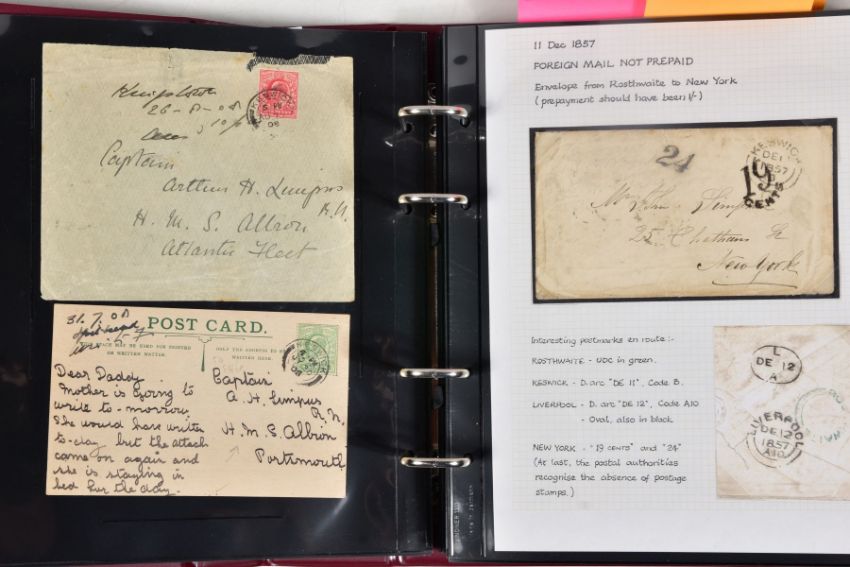 26-8-08
10/6
KESWICK
08
Captain
Arthur H. Limpus
R.N.
H. M. S. Albion
Atlantic Fleet
31.7.08
POST CARD.
SPACE MAY BE USED FOR PRINTED
OR WRITTEN MATTER.
HALF THE ADDRESS TO BE
WRITTEN HERE.
KESWICK
08
Dear Daddy.
Mother is going to
write to-morrow.
She would have written
to-day but the attack
came on again and
she is staying in
bed for the day.
Captain
A. H. Limpus
R.N.
H. M. S. Albion
Portsmouth
11 Dec 1857
FOREIGN MAIL NOT PREPAID
Envelope from Rosthwaite to New York
(prepayment should have been 1/-)
24
KESWICK
DE11
1857
19
CENTS
25 Chatham St
New York
Interesting postmarks en route:-
ROSTHWAITE - UDC in green.
KESWICK - D. arc "DE 11", Code B.
LIVERPOOL - D. arc "DE 12", Code A10
- Oval, also in black
NEW YORK - "19 cents" and "24"
(At last, the postal authorities
recognise the absence of postage
stamps.)
L
DE 12
A
LIVERPOOL
DE 12
1857
A10